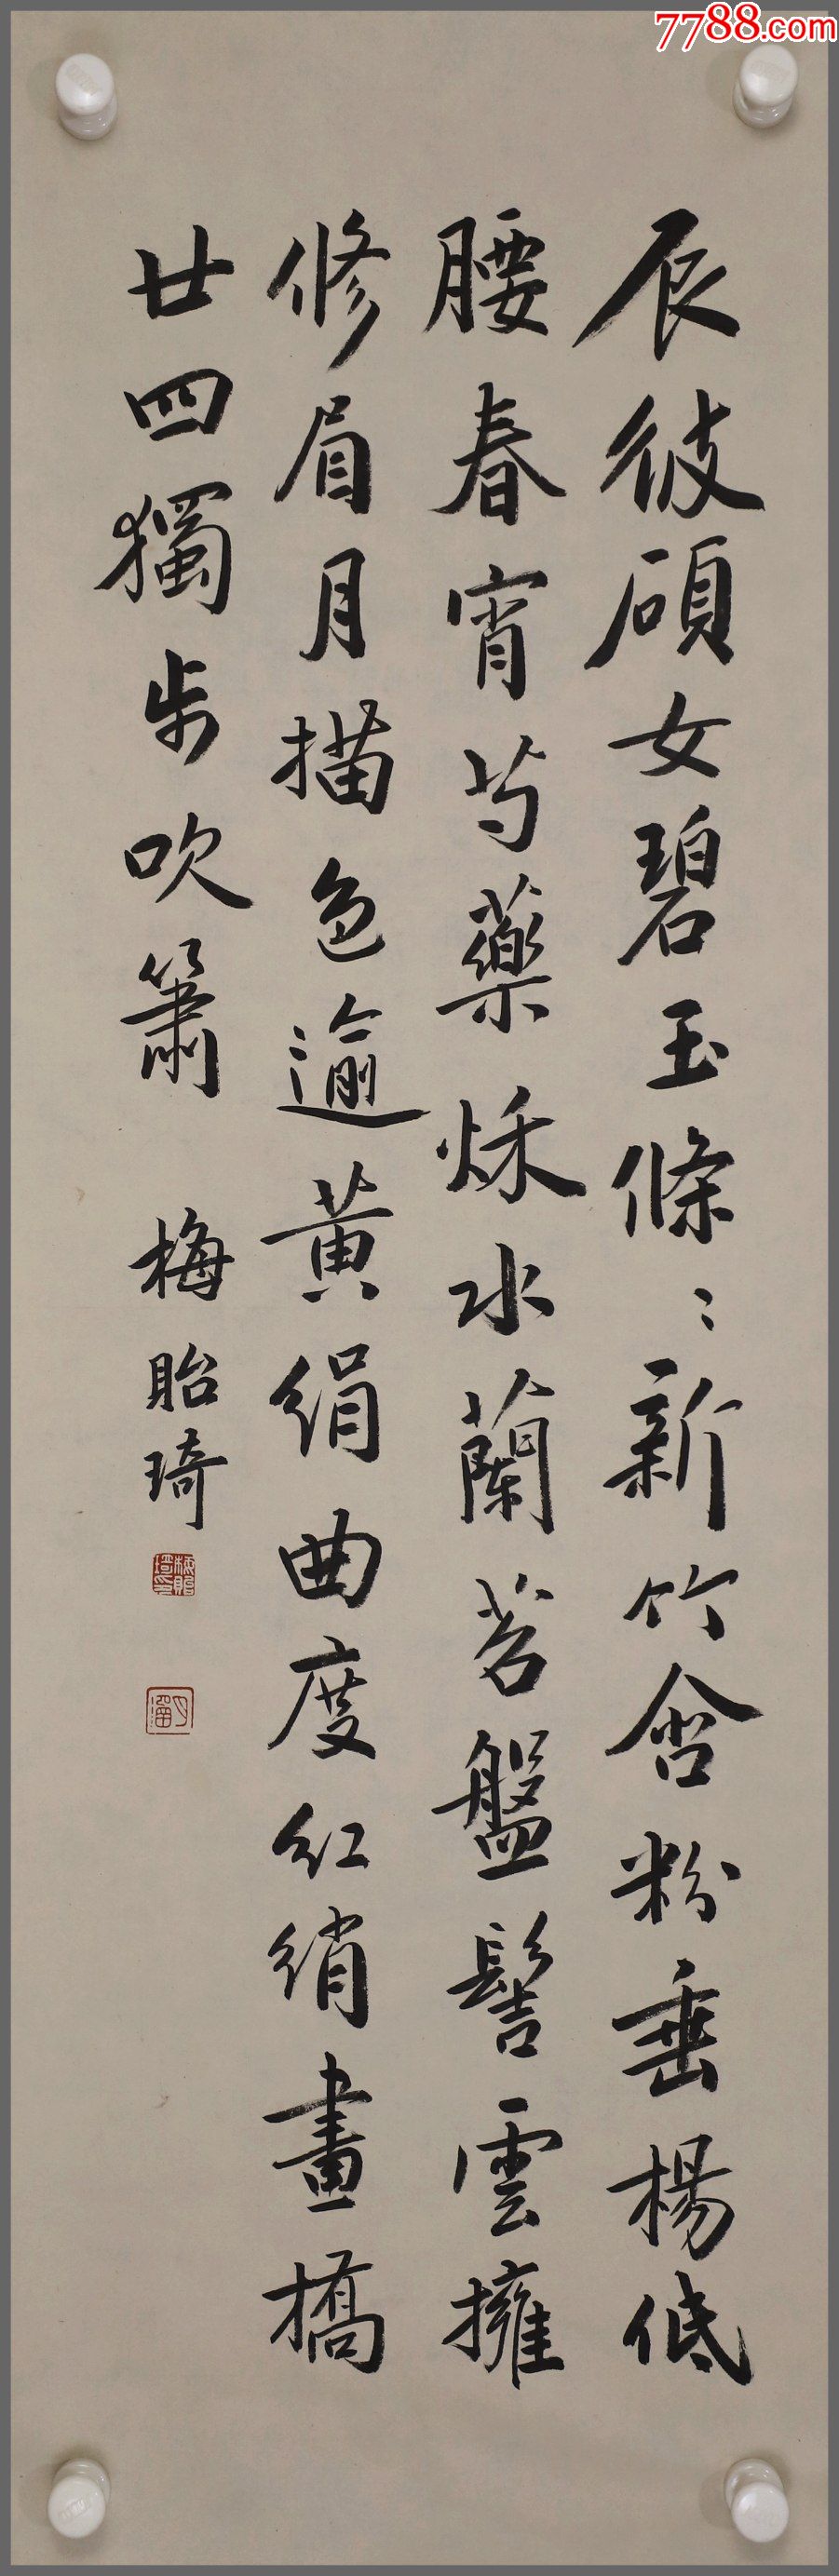 7788.com
辰彼碩女碧玉條〻新竹含粉垂楊低
腰春宵芍藥秌水蘭苕盤髻雲擁
修眉月描色逾黄絹曲度红綃畫橋
廿四獨步吹簫
梅貽琦
梅貽琦印